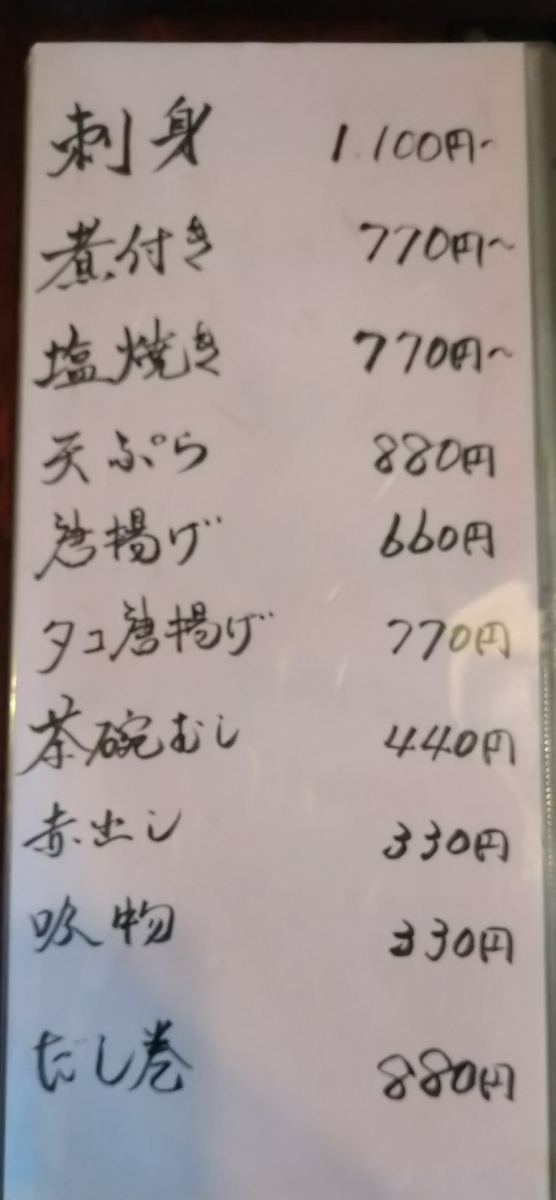 刺身 1.100円~
煮付き 770円~
塩焼き 770円~
天ぷら 880円
唐揚げ 660円
タコ唐揚げ 770円
茶碗むし 440円
赤出し 330円
吸物 330円
だし巻 880円